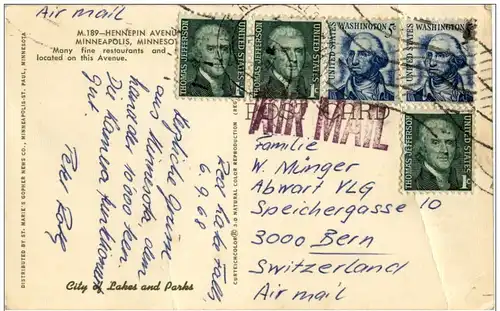 Air mail
M.189—HENNEPIN AVENU
MINNEAPOLIS, MINNESOT
Many fine restaurants and
located on this Avenue.
DISTRIBUTED BY ST. MARIE'S GOPHER NEWS CO., MINNEAPOLIS-ST. PAUL, MINNESOTA
Falls,
6.9.68
Herzliche Grüsse
aus Minnesota, dem
Land der 10 000 Seen.
Die Kamera funktioniert
gut.
City of Lakes and Parks
CURTEICHCOLOR® 3-D NATURAL COLOR REPRODUCTION
THOMAS JEFFERSON
UNITED STATES
1c
THOMAS JEFFERSON
UNITED STATES
1c
WASHINGTON 5c
UNITED STATES
WASHINGTON
UNITED STATES
THOMAS JEFFERSON
UNITED STATES
1c
POST CARD
AIR MAIL
Familie
W. Münger
Abwart VLG
Speichergasse 10
3000 Bern
Switzerland
Air mail